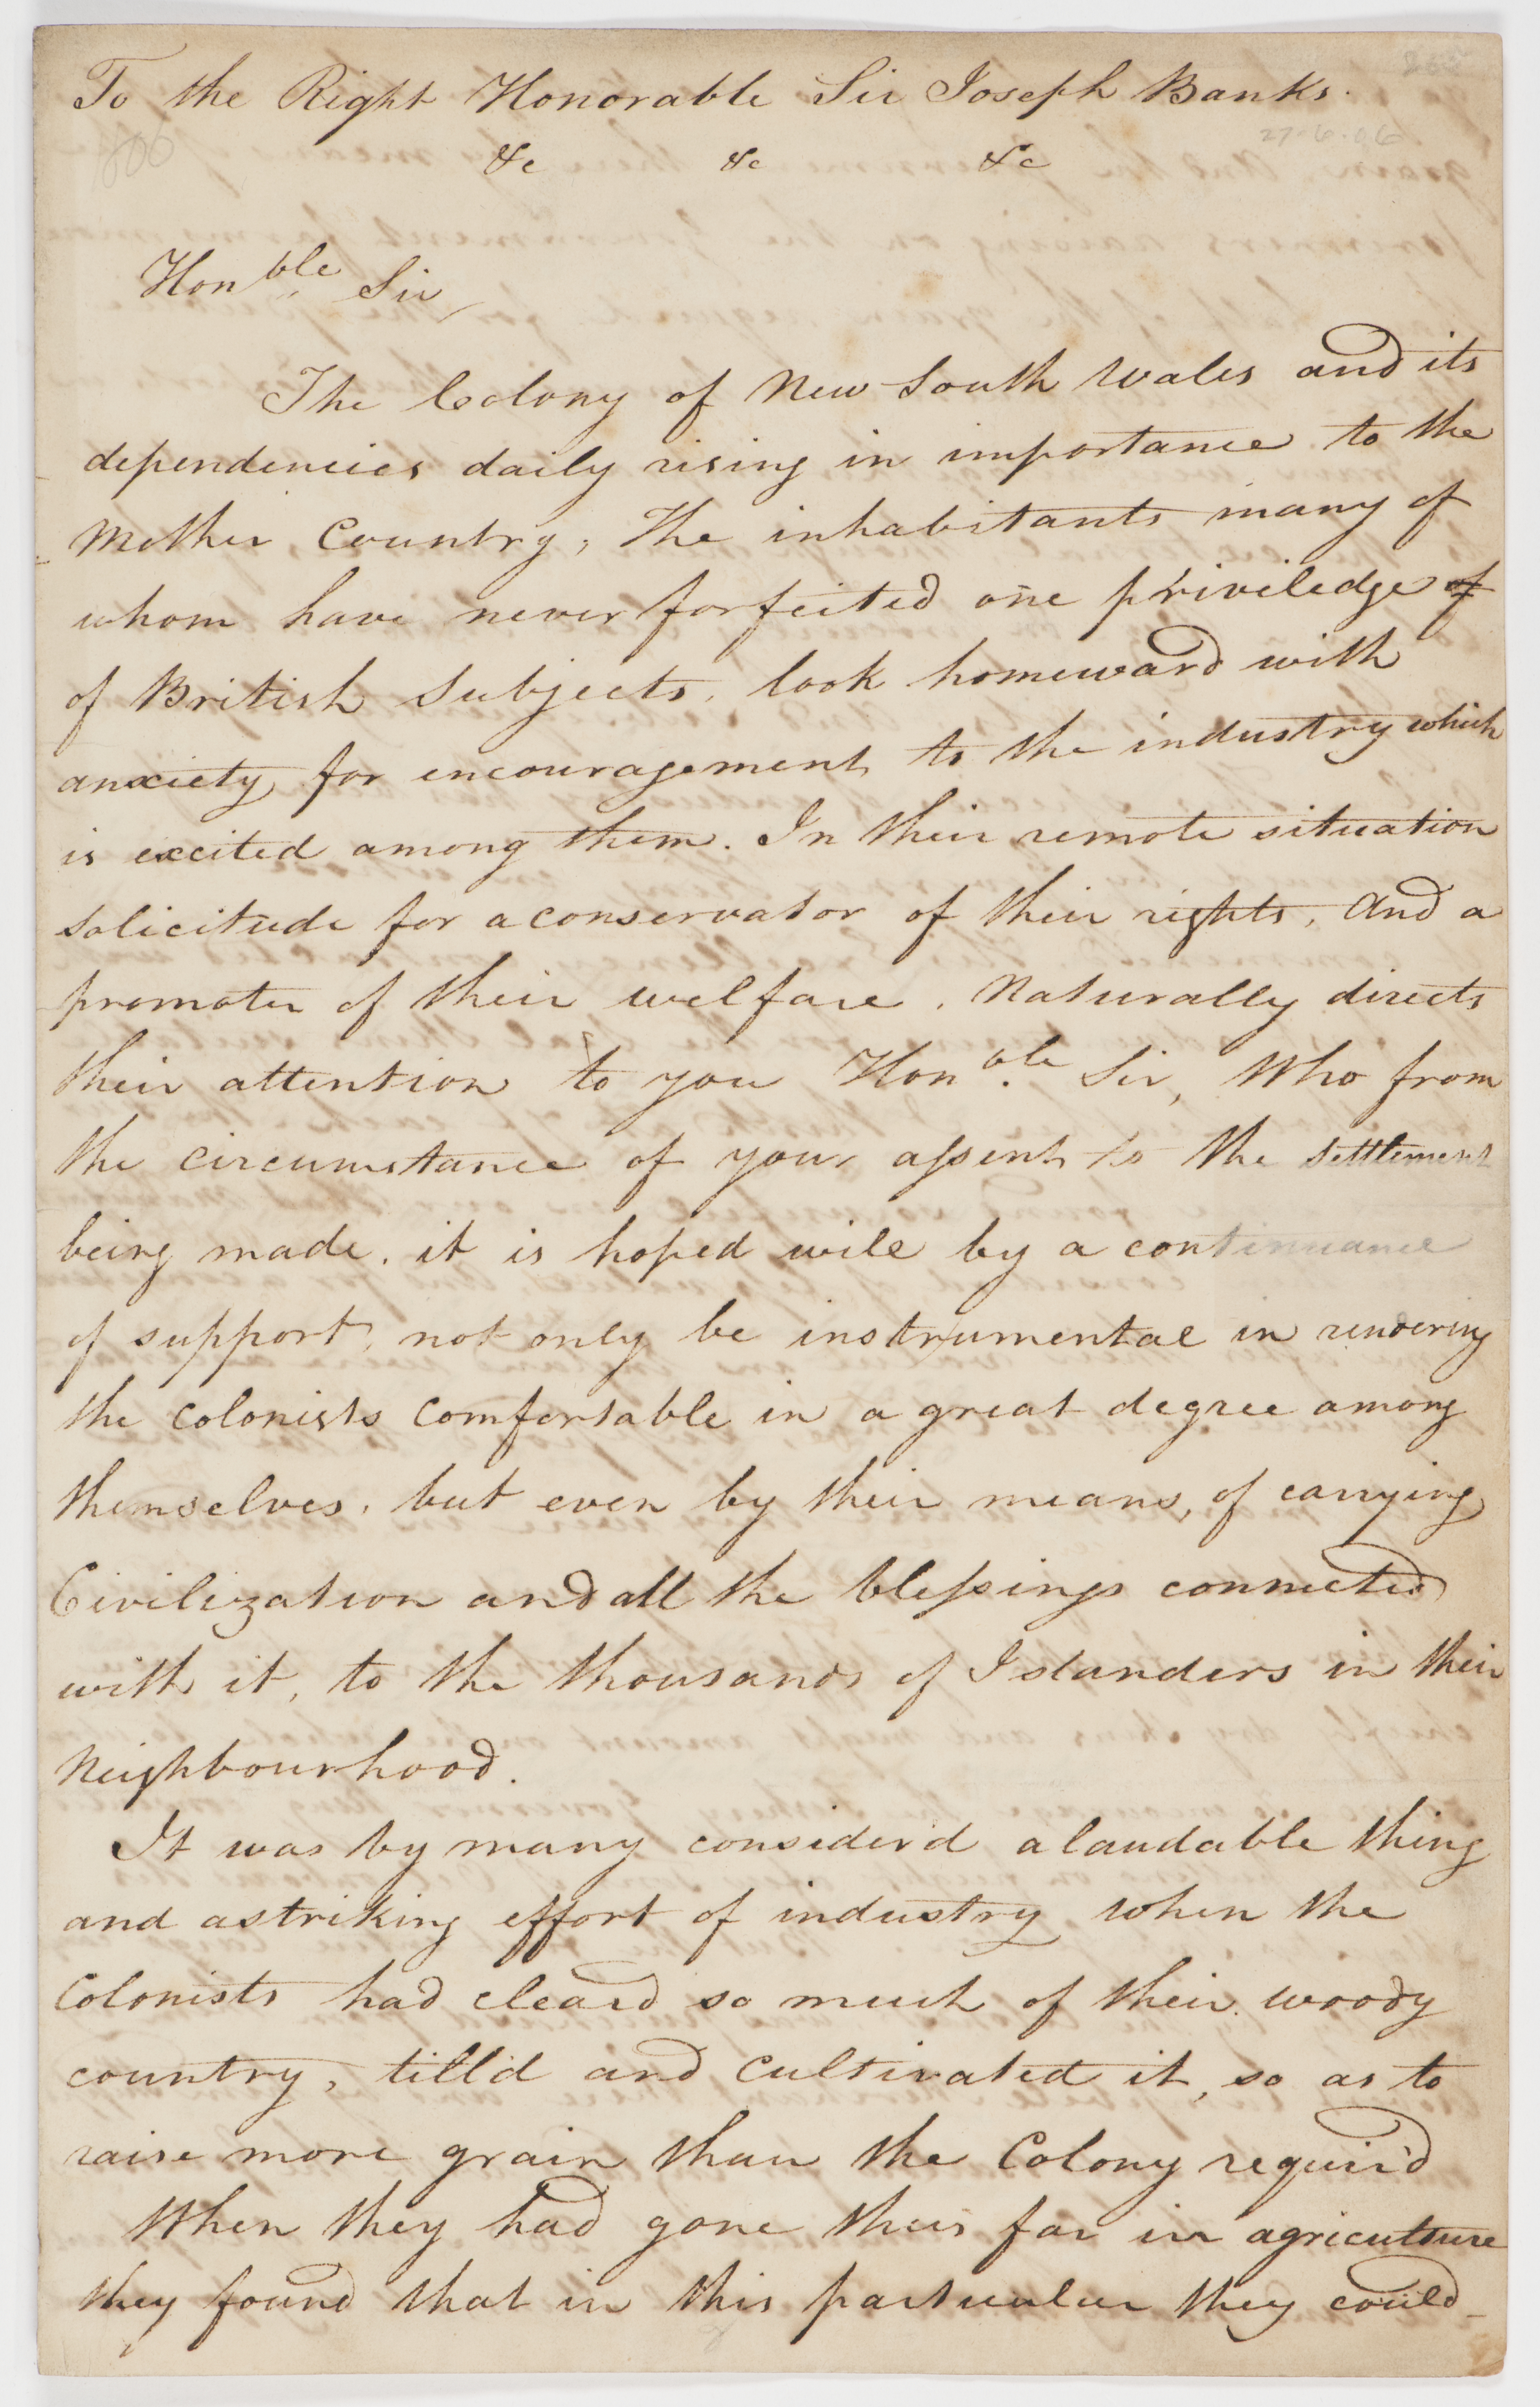 To the Right Honorable Sir Joseph Banks.
27-6-06
&c &c &c
Honble Sir
The Colony of New South Wales and its
dependencies daily rising in importance to the
Mother Country, The inhabitants many of
whom have never forfeited one priviledge of
of British Subjects, look homeward with
anxiety for encouragement to the industry which
is excited among them. In their remote situation
solicitude for a conservator of their rights, And a
promoter of their welfare, Naturally directs
their attention to you Honble Sir, Who from
the circumstance of your assent to the settlement
being made, it is hoped will by a continuance
of support, not only be instrumental in rendering
the Colonists Comfortable in a great degree among
themselves, but even by their means, of carrying
Civilization and all the blessings connected
with it, to the thousands of Islanders in their
Neighbourhood.
It was by many consider'd a laudable thing
and a striking effort of industry when the
Colonists had clear'd so much of their woody
country, till'd and Cultivated it, so as to
raise more grain than the Colony requir'd
When they had gone thus far in agriculture
they found that in this particular they could